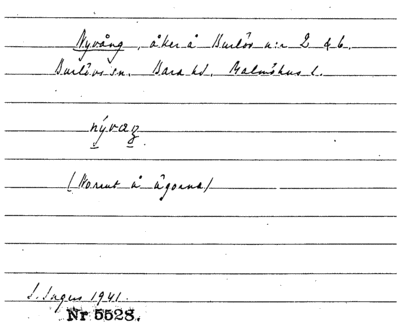 Nyvång, åker å Burlöv n:r 2 & 6.
Burlövs sn. Bara hd. Malmöhus l.
nývaŋ
(Norrut å ägorna)
1941.
Nr 5528.